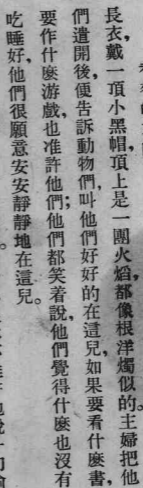 長衣,戴一頂小黑帽,頂上是一團火焰,都像根洋燭似的主婦把他
們遣開後,便告訴動物們,叫他們好好的在這兒,如果要看什麼書,
要作什麼游戲,也准許他們;他們都笑着說,他們覺得什麼也沒有
吃睡好,他們很願意安安靜靜地在這兒。